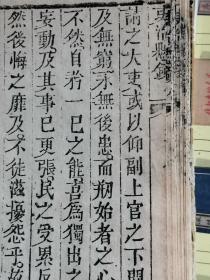 請之大吏或以仰副上官之下問
及無窮永無後患而剏始者之心
不然自若一己之能喜爲獨出之
妄動及其事已更張民之受累反
然後悔之靡及不徒滋擾怨乎故